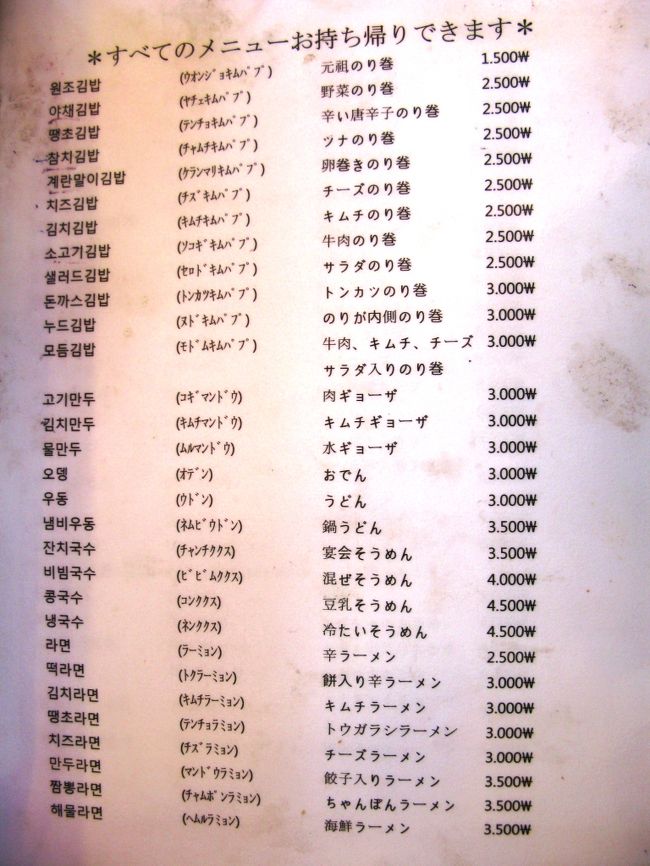 ＊すべてのメニューお持ち帰りできます＊
원조김밥 (ウオンジョキムパプ) 元祖のり巻 1.500₩
야채김밥 (ヤチェキムパプ) 野菜のり巻 2.500₩
땡초김밥 (テンチョキムパプ) 辛い唐辛子のり巻 2.500₩
참치김밥 (チャムチキムパプ) ツナのり巻 2.500₩
계란말이김밥 (ケランマリキムパプ) 卵巻きのり巻 2.500₩
치즈김밥 (チズキムパプ) チーズのり巻 2.500₩
김치김밥 (キムチキムパプ) キムチのり巻 2.500₩
소고기김밥 (ソコギキムパプ) 牛肉のり巻 2.500₩
샐러드김밥 (セロドキムパプ) サラダのり巻 2.500₩
돈까스김밥 (トンカツキムパプ) トンカツのり巻 3.000₩
누드김밥 (ヌドキムパプ) のりが内側のり巻 3.000₩
모듬김밥 (モドムキムパプ) 牛肉、キムチ、チーズ 3.000₩
サラダ入りのり巻
고기만두 (コギマンドウ) 肉ギョーザ 3.000₩
김치만두 (キムチマンドウ) キムチギョーザ 3.000₩
물만두 (ムルマンドウ) 水ギョーザ 3.000₩
오뎅 (オデン) おでん 3.000₩
우동 (ウドン) うどん 3.000₩
냄비우동 (ネムビウドン) 鍋うどん 3.500₩
잔치국수 (チャンチククス) 宴会そうめん 3.500₩
비빔국수 (ビビムククス) 混ぜそうめん 4.000₩
콩국수 (コンククス) 豆乳そうめん 4.500₩
냉국수 (ネンククス) 冷たいそうめん 4.500₩
라면 (ラーミョン) 辛ラーメン 2.500₩
떡라면 (トクラーミョン) 餅入り辛ラーメン 3.000₩
김치라면 (キムチラーミョン) キムチラーメン 3.000₩
땡초라면 (テンチョラミョン) トウガラシラーメン 3.000₩
치즈라면 (チズラミョン) チーズラーメン 3.000₩
만두라면 (マンドウラミョン) 餃子入りラーメン 3.500₩
짬뽕라면 (チャムポンラミョン) ちゃんぽんラーメン 3.500₩
해물라면 (ヘムルラミョン) 海鮮ラーメン 3.500₩